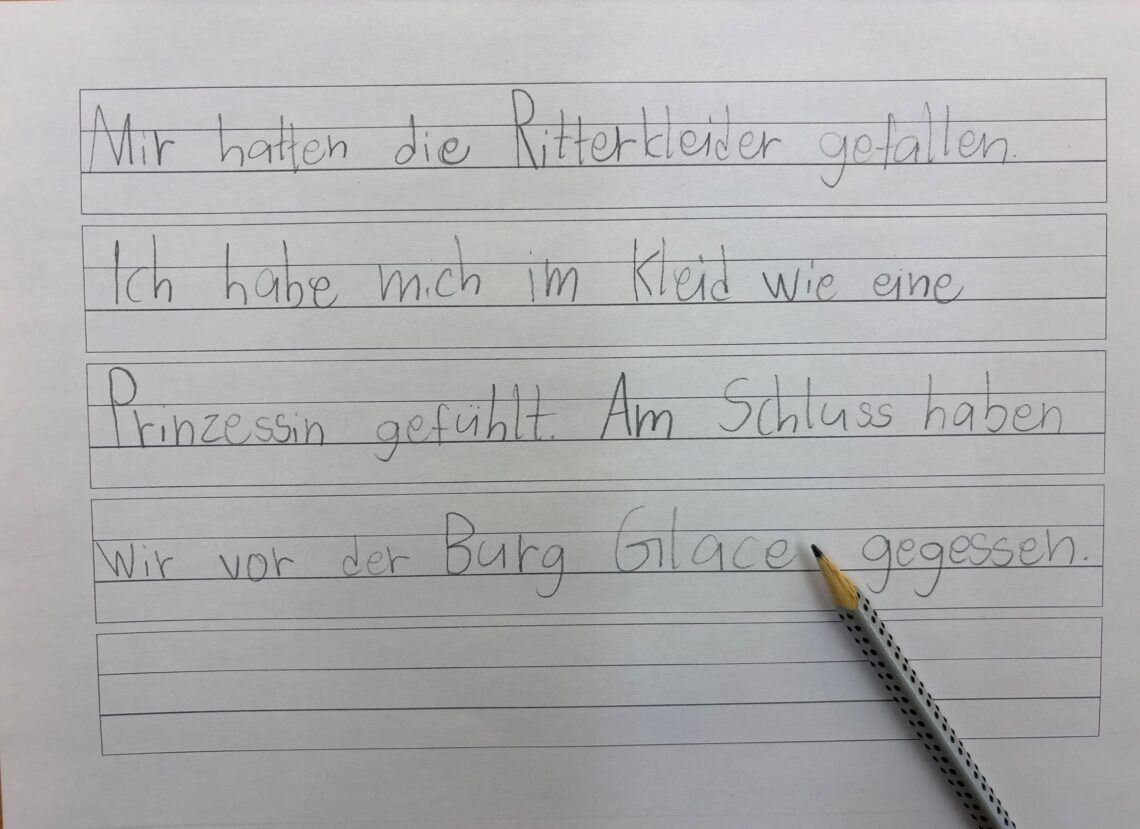 Mir hatten die Ritterkleider gefallen.
Ich habe mich im Kleid wie eine
Prinzessin gefühlt. Am Schluss haben
Wir vor der Burg Glace gegessen.